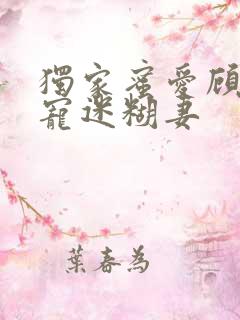 獨家蜜愛顧
寵迷糊妻
葉春為